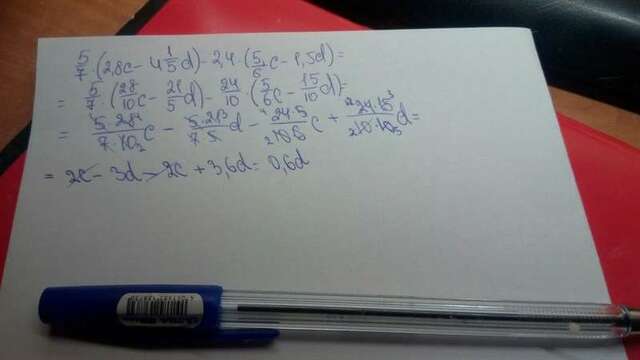 5/7 · (2,8c - 4 1/5 d) - 2,4 · (5/6 c - 1,5d) =
= 5/7 · (28/10 c - 21/5 d) - 24/10 · (5/6 c - 15/10 d) =
= 5·28/7·10 c - 5·21/7·5 d - 24·5/10·6 c + 24·15/10·10 d =
= 2c - 3d - 2c + 3,6d = 0,6d